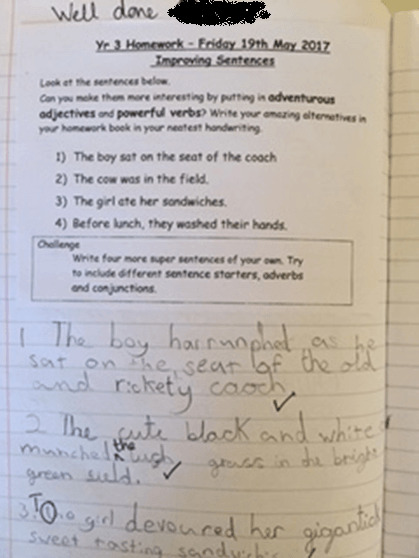 Well done
Yr 3 Homework - Friday 19th May 2017
Improving Sentences
Look at the sentences below.
Can you make them more interesting by putting in adventurous
adjectives and powerful verbs? Write your amazing alternatives in
your homework book in your neatest handwriting.
1) The boy sat on the seat of the coach
2) The cow was in the field.
3) The girl ate her sandwiches.
4) Before lunch, they washed their hands.
Challenge
Write four more super sentences of your own. Try
to include different sentence starters, adverbs
and conjunctions.
1 The boy harrunphed as he
sat on the seat of the old
and rickety coach.
2 The cute black and white
munched the lush grass in the bright
green
3. girl devoured her gigantic
sweet tasting